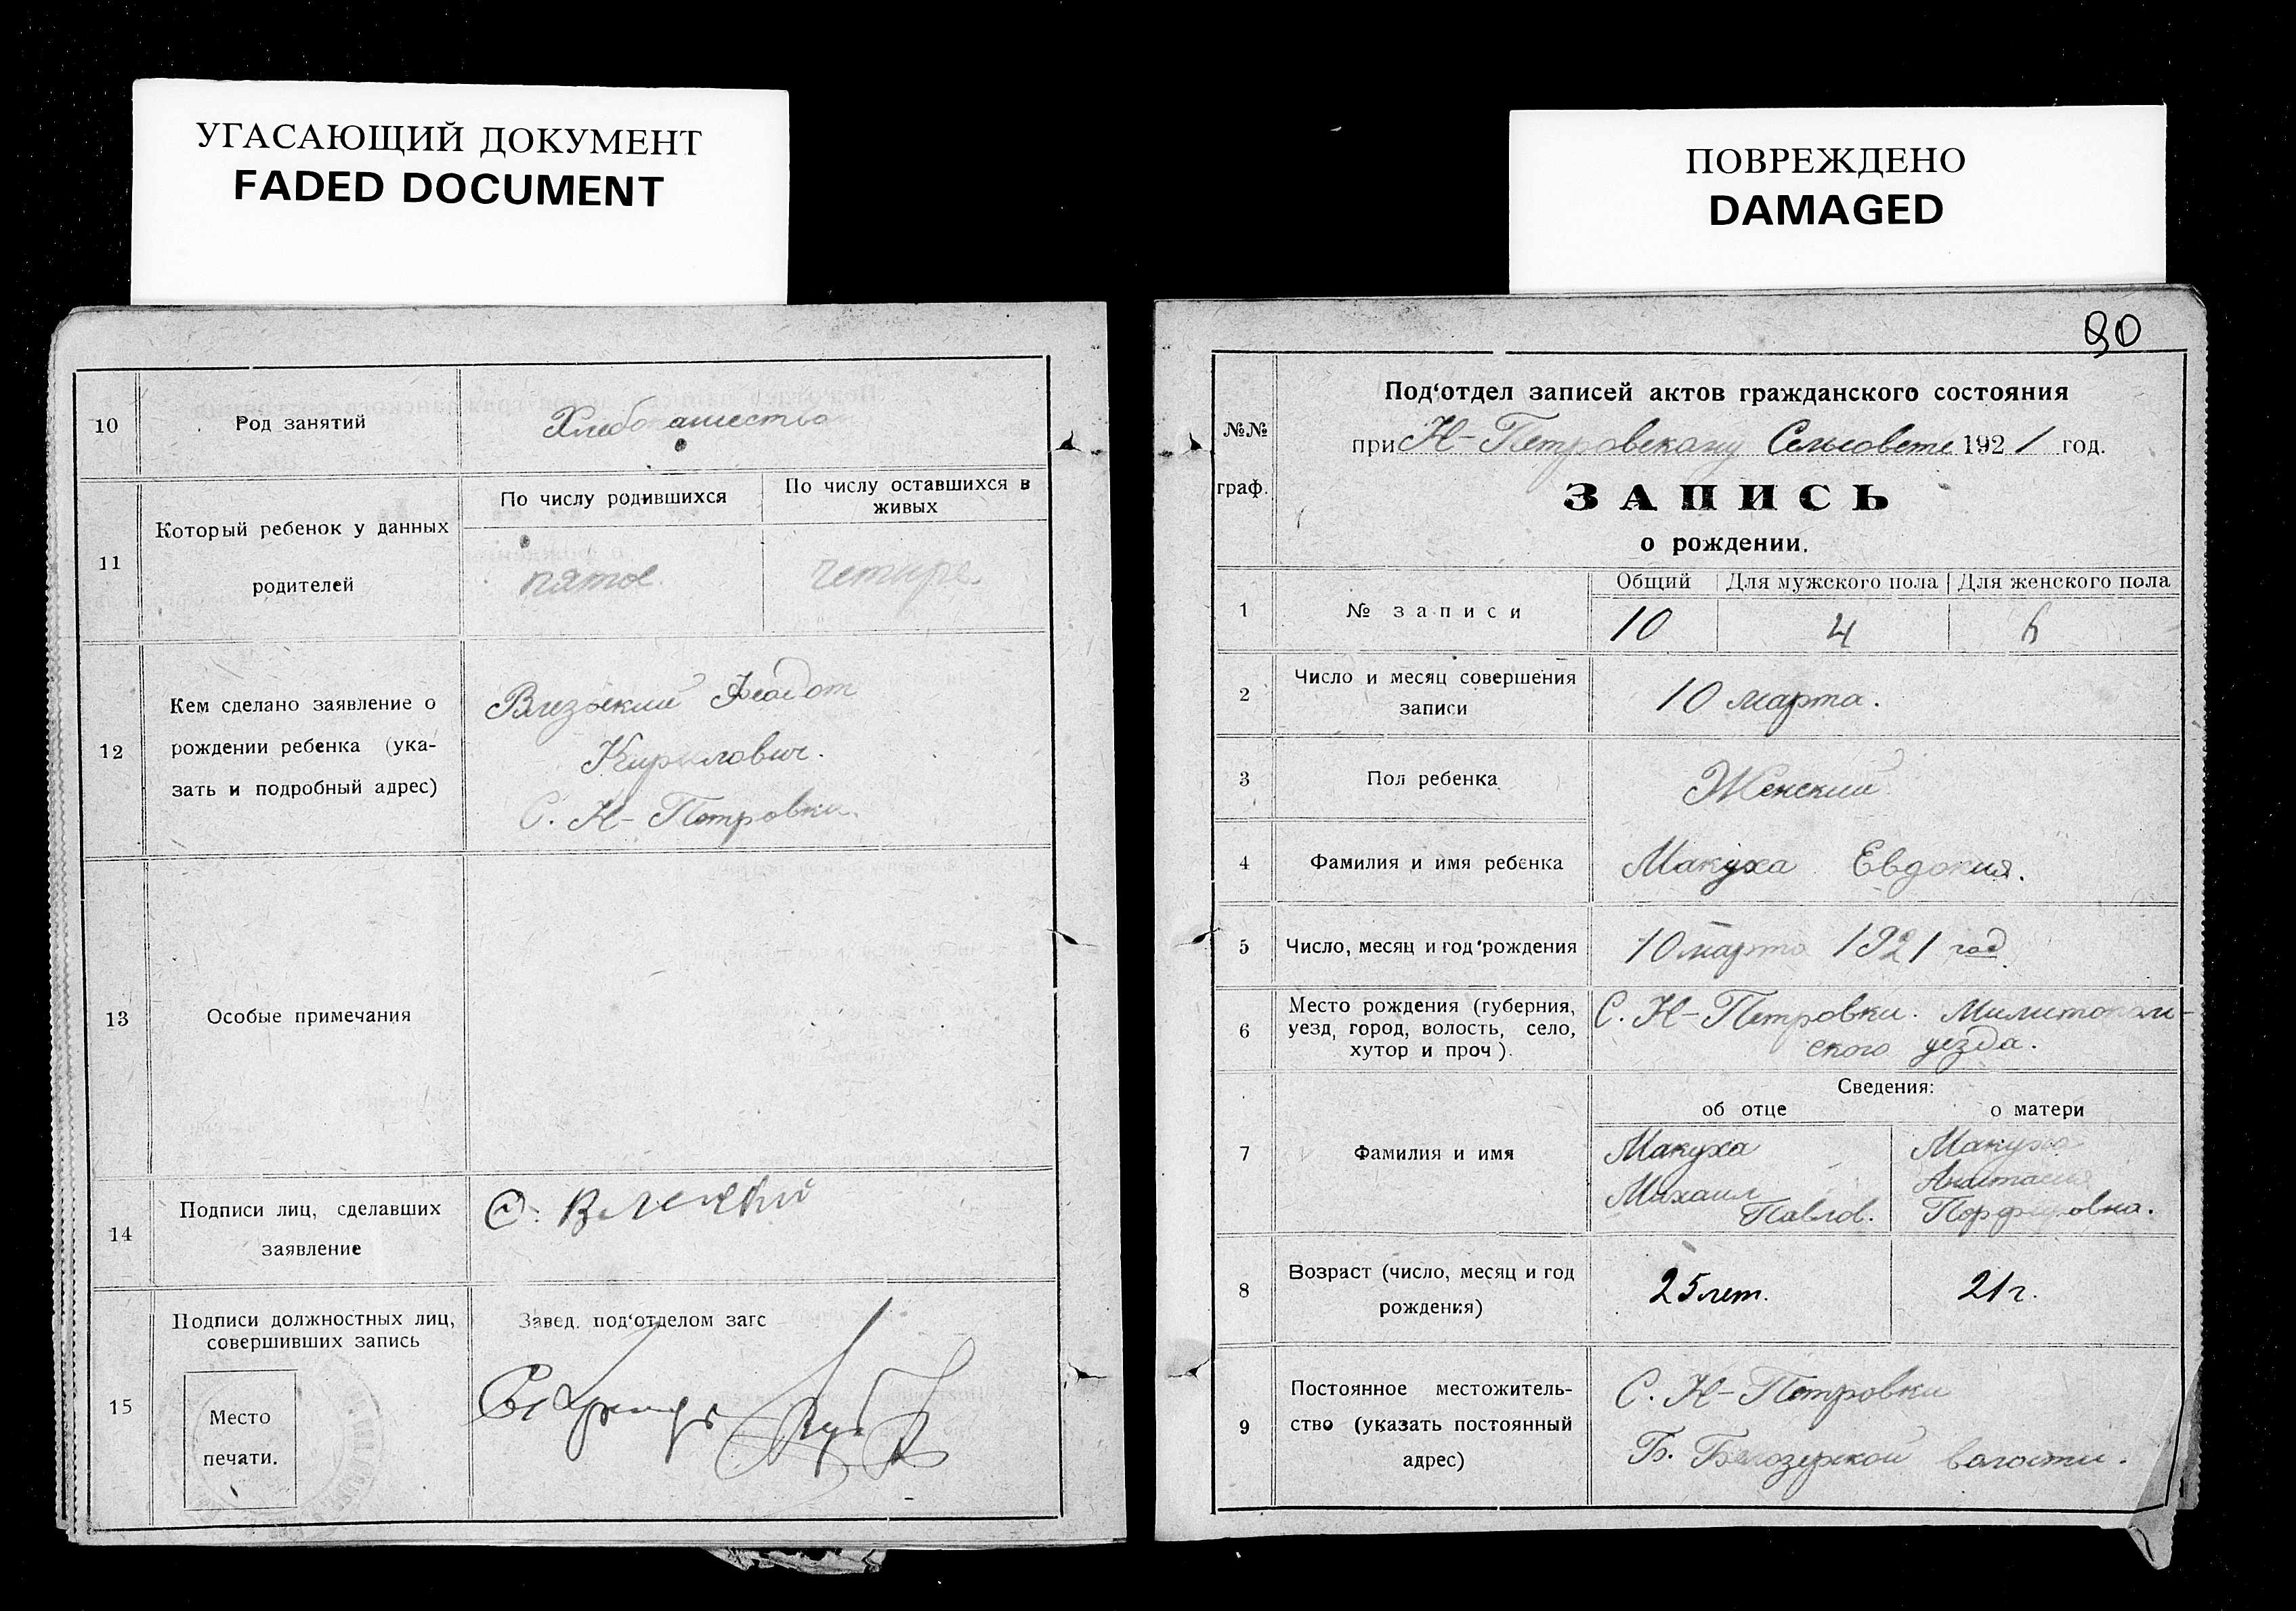 УГАСАЮЩИЙ ДОКУМЕНТ
FADED DOCUMENT
ПОВРЕЖДЕНО
DAMAGED
10
Род занятий
Хлебопашество
11
Который ребенок у данных
родителей
По числу родившихся
По числу оставшихся в
живых
пятое
четыре
12
Кем сделано заявление о
рождении ребенка (ука-
зать и подробный адрес)
Федот
Кирилович.
С. Н-Петровки.
13
Особые примечания
14
Подписи лиц, сделавших
заявление
15
Подписи должностных лиц,
совершивших запись
Место
печати.
Завед. под'отделом загс
90
№№
граф.
Под'отдел записей актов гражданского состояния
при Н-Петровскому Сельсовете 1921 год.
ЗАПИСЬ
о рождении.
1
№ записи
Общий Для мужского пола Для женского пола
10 4 6
2
Число и месяц совершения
записи
10 марта.
3
Пол ребенка
Женский
4
Фамилия и имя ребенка
Макуха Евдокия.
5
Число, месяц и год рождения
10 марта 1921 год.
6
Место рождения (губерния,
уезд, город, волость, село,
хутор и проч).
С. Н-Петровки. Милитополь-
ского уезда.
7
Фамилия и имя
Сведения:
об отце
о матери
Макуха
Михаил
Павлов.
Макуха
Анастасия
Порфировна.
8
Возраст (число, месяц и год
рождения)
25 лет.
21 г.
9
Постоянное местожитель-
ство (указать постоянный
адрес)
С. Н-Петровки
Б. Белозерской волости.